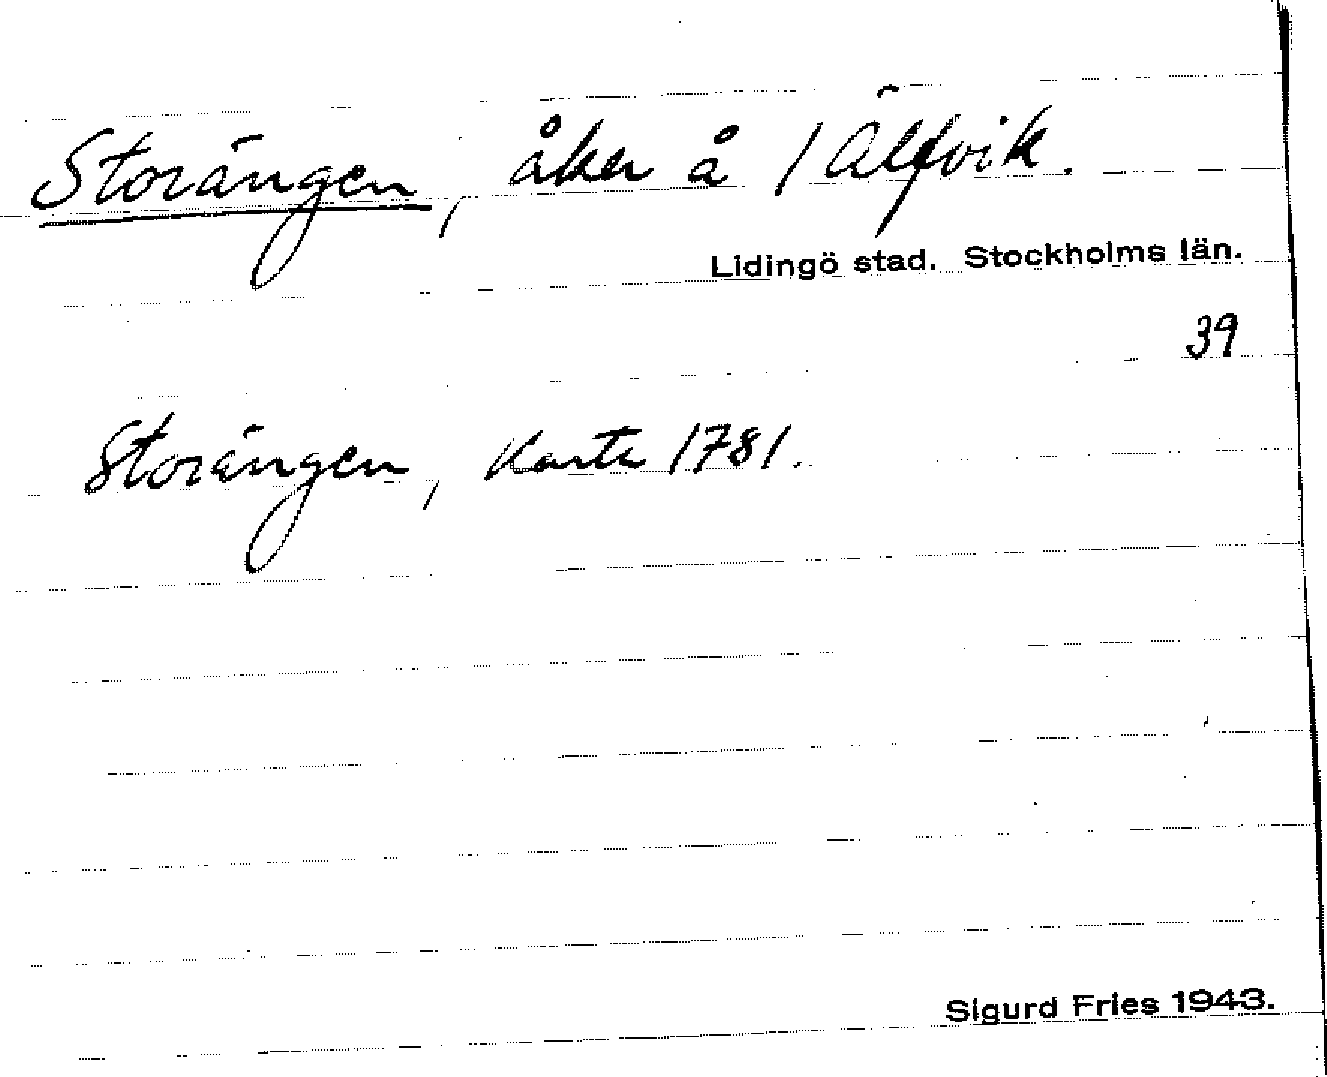 Storängen, åker å / Älfvik.
Lidingö stad. Stockholms län.
39
Storängen, Karta 1781.
Sigurd Fries 1943.